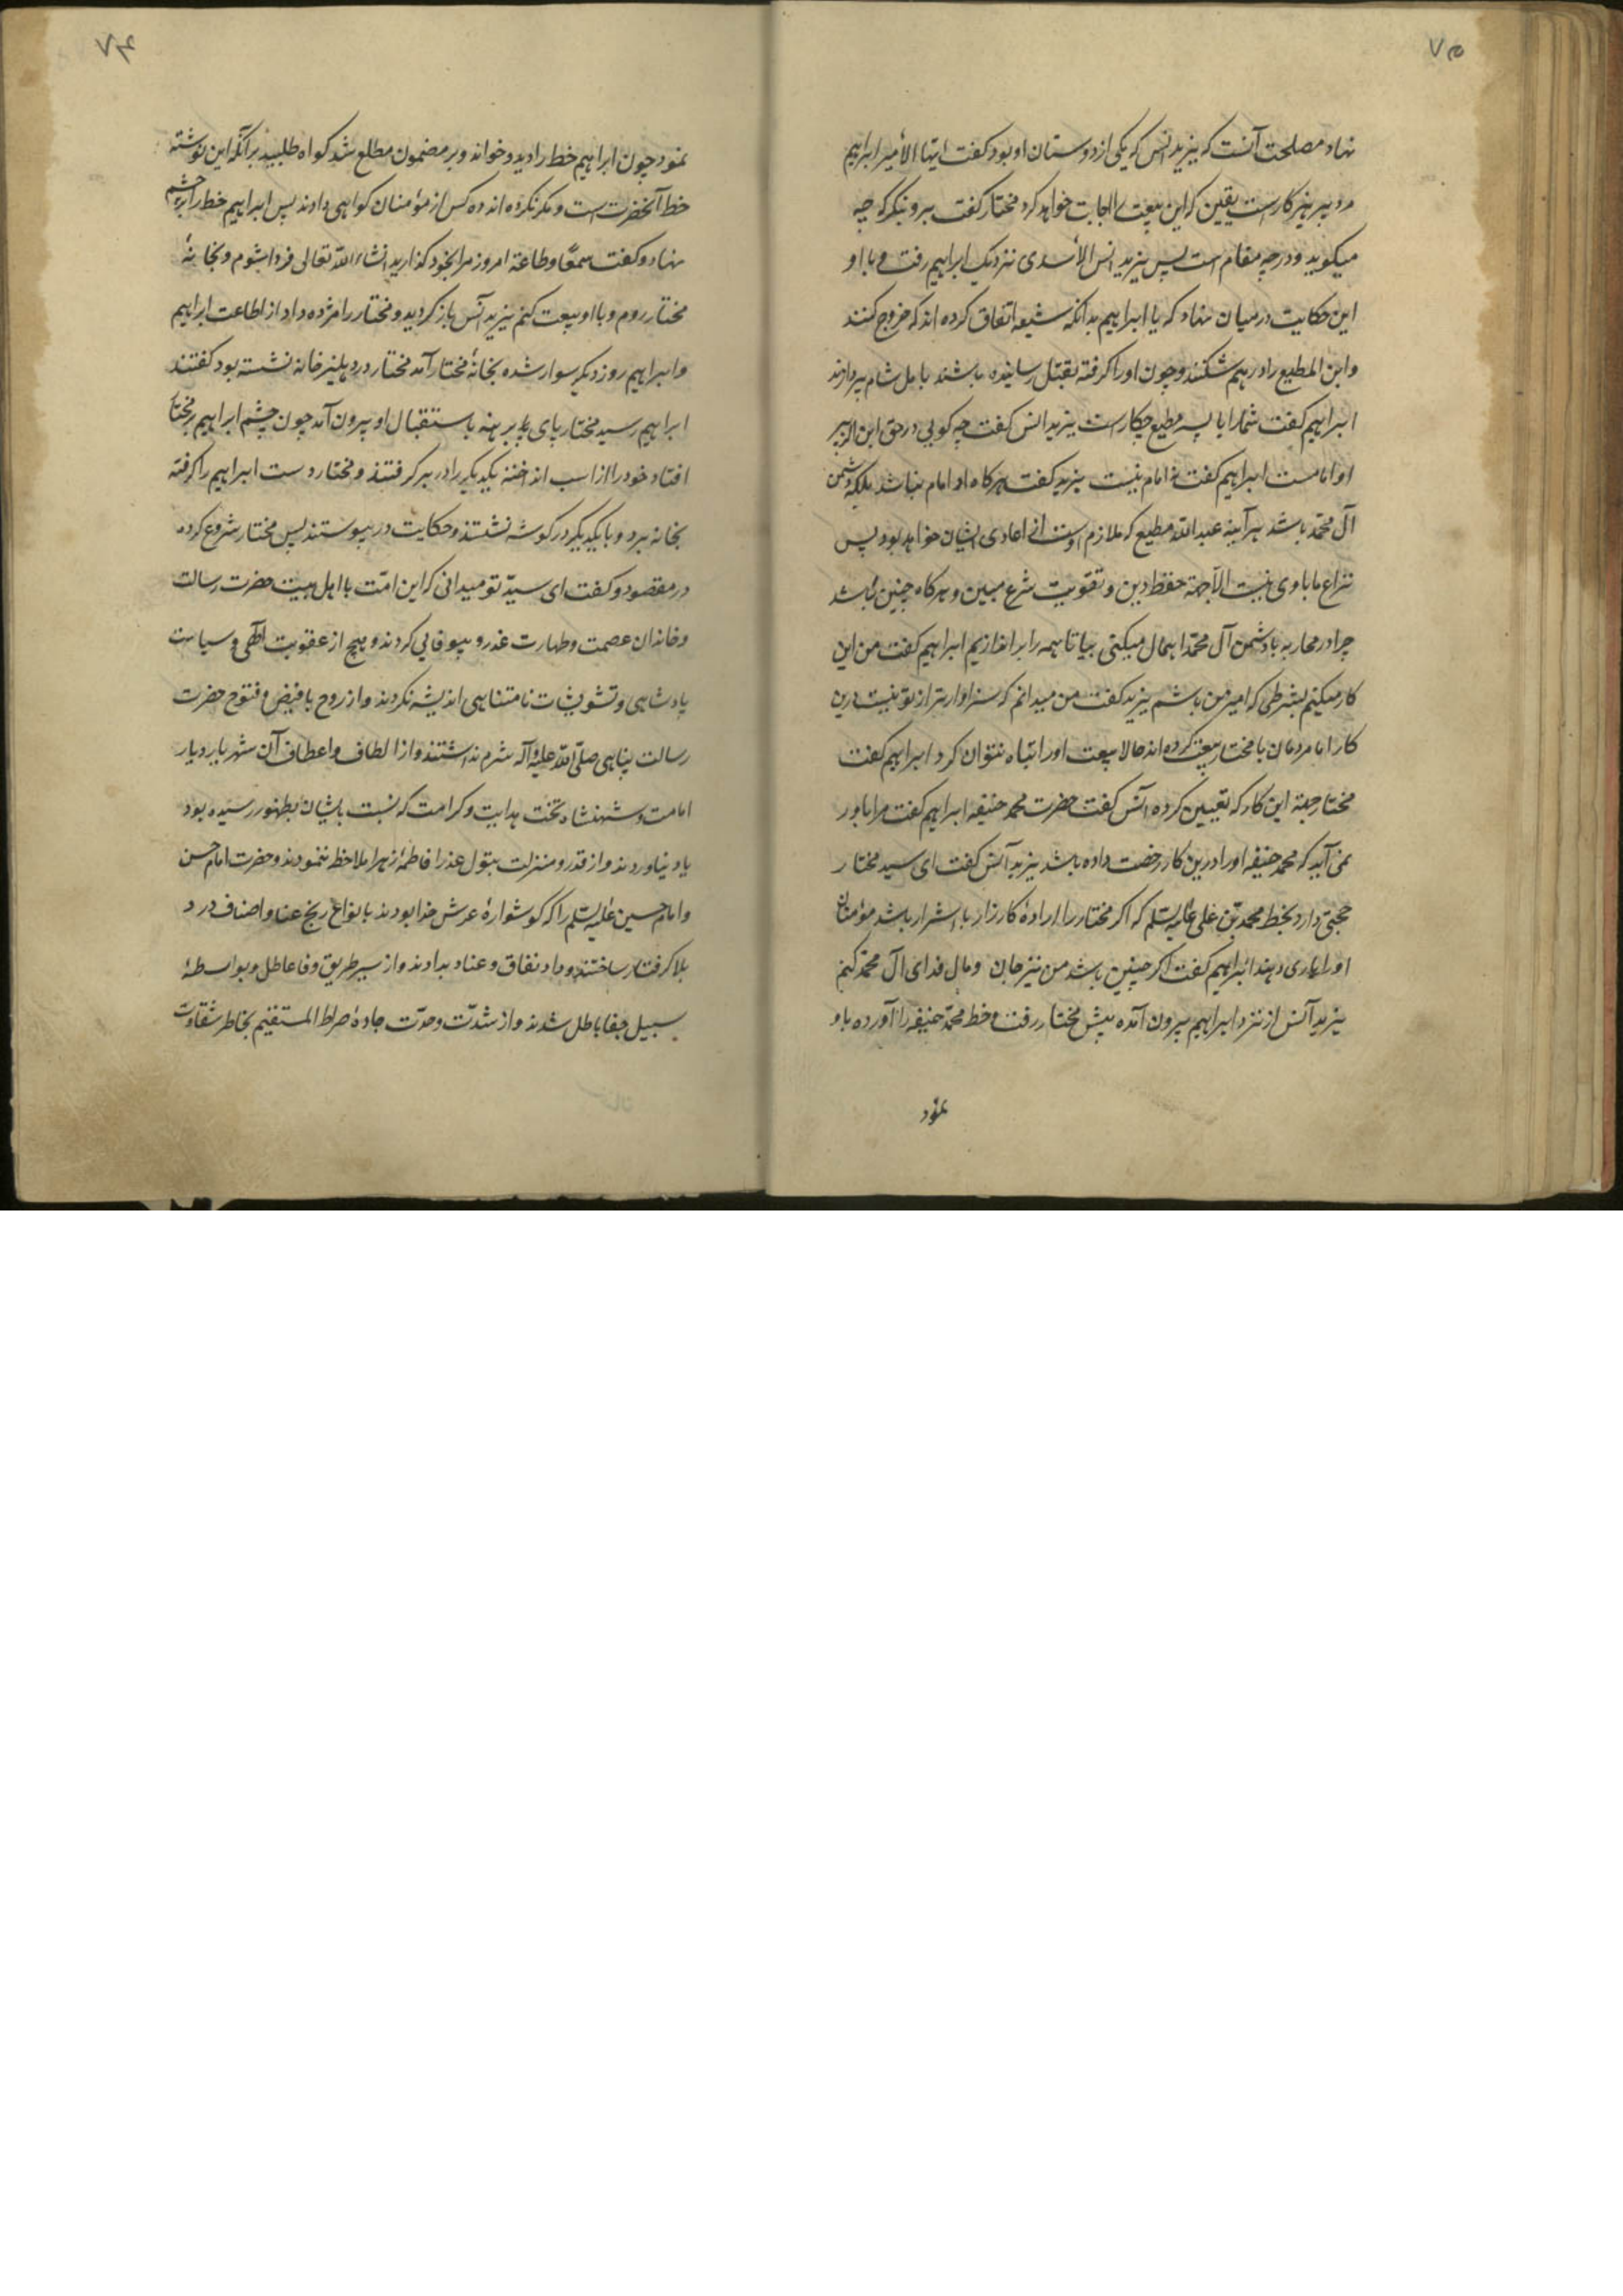 ۷۵
نهاد مصلحت آنست که یزید انس که یکی از دوستان او بود کفت ایها الأمیر ابراهیم
مرد پرهیز کارست یقین که این بیعت را اجابت خواهد کرد مختار کفت برو بنکر که چه
میکوید و درچه مقام است پس یزید انس الأسدی نزدیک ابراهیم رفت و با او
این حکایت در میان نهاد که یا ابراهیم بدانکه شیعه اتفاق کرده اند که خروج کنند
و ابن المطیع را درهم شکنند و چون او را کرفته بقتل رسانیده باشند باهل شام پردازند
ابراهیم کفت شما را با پسر مطیع چکارست یزید انس کفت چه کویی در حق ابن الزبیر
او امامست ابراهیم کفت نه امام نیست یزید کفت هرکاه او امام نباشد بلکه دشمن
آل محمّد باشد هرآینه عبد الله مطیع که ملازم اوست از اعادی ایشان خواهد بود پس
نزاع ما با وی نیست الّا جهة حفظ دین و تقویت شرع مبین و هرکاه چنین باشد
چرا در محاربه با دشمن آل محمّد اهمال میکنی بیا تا همه را براندازیم ابراهیم کفت من این
کار میکنم بشرطی که امیر من باشم یزید کفت من میدانم که سزاوارتر از تو نیست درین
کار اما مردمان با مختار بیعت کرده اند حالا بیعت او را تباه نتوان کرد ابراهیم کفت
مختار جهة این کار که تعیین کرده انس کفت حضرت محمد حنیفه ابراهیم کفت مرا باور
نمی آید که محمد حنیفه او را درین کار رخصت داده باشد یزید انس کفت ای سید مختار
حجتی دارد بخط محمد بن علی علیه السّلم که اکر مختار را اراده کارزار با اشرار باشد مؤمنان
او را یاری دهند ابراهیم کفت اکر چنین باشد من نیز جان و مال فدای آل محمّد کنم
یزید انس از نزد ابراهیم بیرون آمده پیش مختار رفت و خط محمّد حنیفه را آورده باو
نمود
۷۶
نمود چون ابراهیم خط را دید و خواند و بر مضمون مطلع شد کواه طلبید برآنکه این نوشته
خط آنحضرت است و مکر نکرده اند ده کس از مؤمنان کواهی دادند پس ابراهیم خط را بر چشم
نهاد و کفت سمعًا و طاعة امروز مرا بخود کذارید انشاء الله تعالی فردا بشوم و بخانهٔ
مختار روم و با او بیعت کنم یزید انس باز کردید و مختار را مژده داد از اطاعت ابراهیم
و ابراهیم روز دیکر سوار شده بخانهٔ مختار آمد مختار در دهلیز خانه نشسته بود کفتند
ابراهیم رسید مختار پای برهنه باستقبال او بیرون آمد چون چشم ابراهیم بر مختار
افتاد خود را از اسب انداخته یکدیکر را در بر کرفتند و مختار دست ابراهیم را کرفته
بخانه برد و با یکدیکر در کوشه نشستند و حکایت در پیوستند پس مختار شروع کرده
در مقصود و کفت ای سیّد تو میدانی که این امّت با اهل بیت حضرت رسالت
و خاندان عصمت و طهارت غدر و بیوفایی کردند و هیچ از عقوبت الهی و سیاست
پادشاهی و تشویشات نامتناهی اندیشه نکردند و از روح با فیض و فتوح حضرت
رسالت پناهی صلّی الله علیه و آله شرم نداشتند و از الطاف و اعطاف آن شهریار دیار
امامت و شهنشاه تخت هدایت و کرامت که نسبت بایشان بظهور رسیده بود
یاد نیاوردند و از قدر و منزلت بتول عذرا فاطمهٔ زهرا ملاحظه ننمودند و حضرت امام حسن
و امام حسین علیه السّلم را که کوشوارهٔ عرش خدا بودند بانواع رنج و عنا و اصناف درد
بلا کرفتار ساختند و داد نفاق و عناد بدادند و از سیر طریق وفا عاطل و بواسطهٔ
سبیل جفا باطل شدند و از شدّت و حدّت جادهٔ صراط المستقیم بخاطر شقاوت